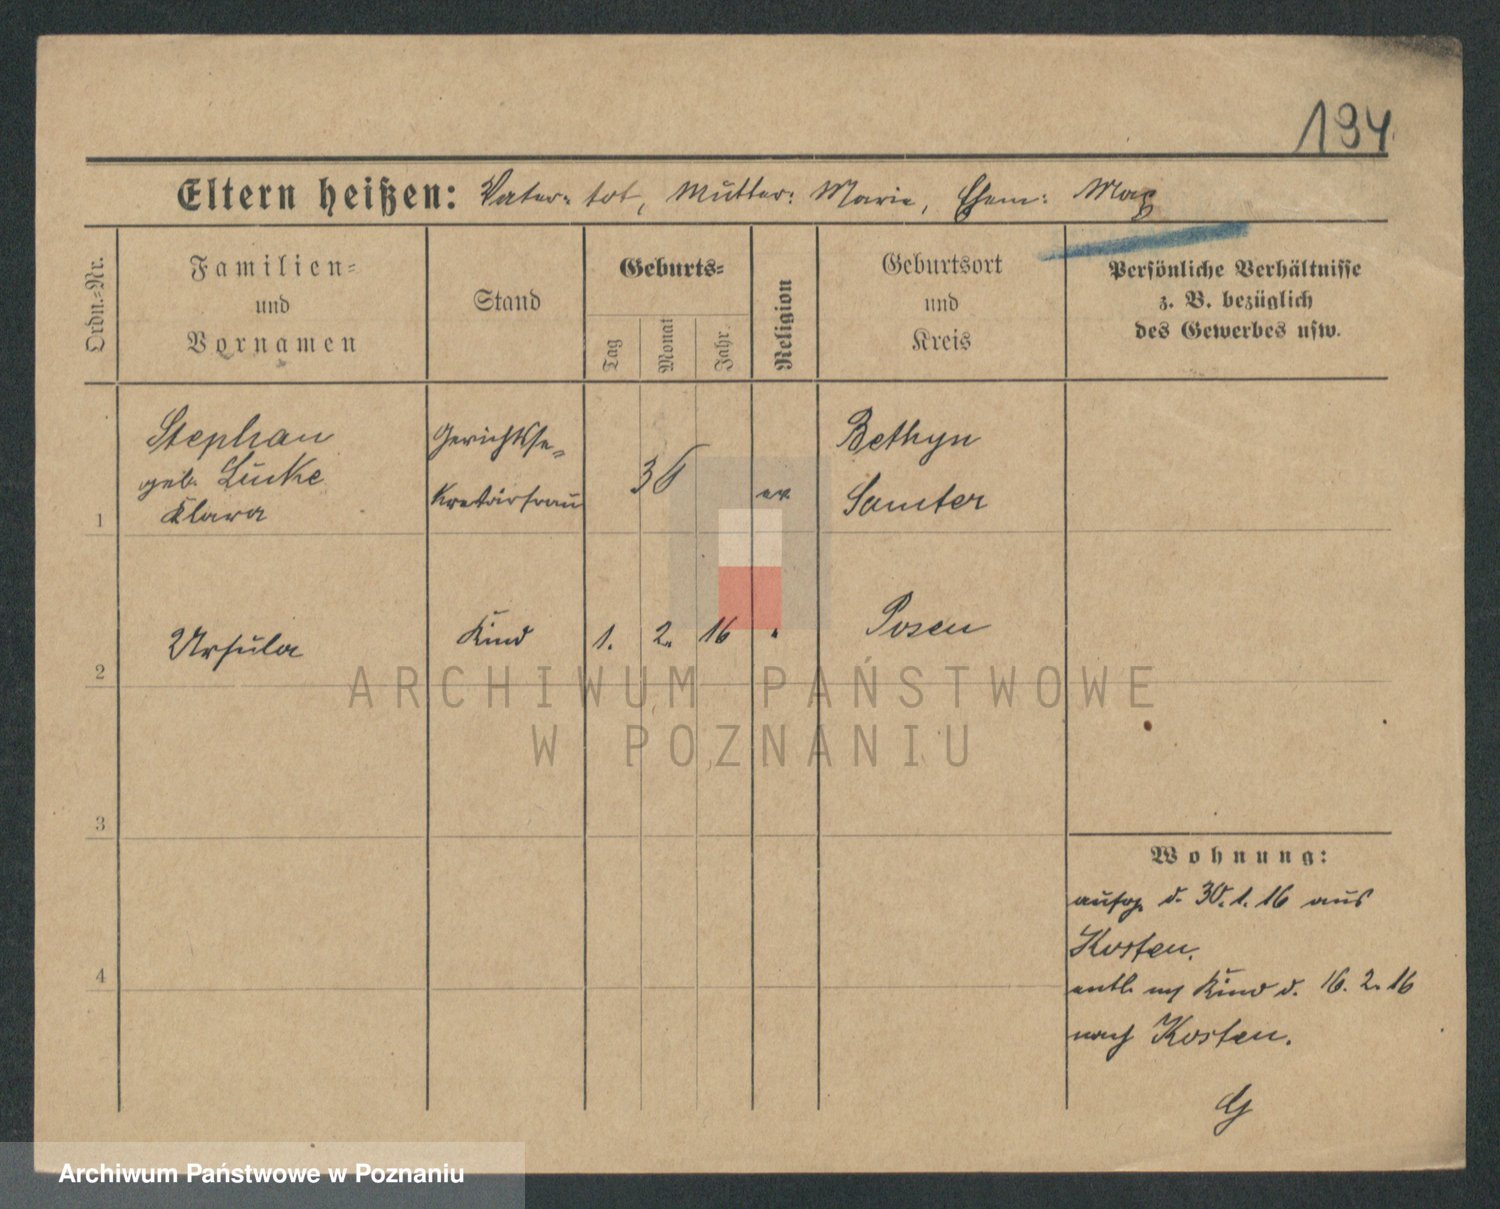 134
Eltern heißen: Vater: tot, Mutter: Marie, Ehem: Max
Ordn.-Nr.
Familien-
und
Vornamen
Stand
Geburts-
Tag
Monat
Jahr.
Religion
Geburtsort
und
Kreis
Persönliche Verhältnisse
z. B. bezüglich
des Gewerbes usw.
1
Stephan
geb. Lücke
Klara
Gerichtsse-
kretärfrau
36
ev.
Bethyn
Samter
2
Ursula
Kind
1. 2. 16
Posen
ARCHIWUM PAŃSTWOWE
W POZNANIU
3
Wohnung:
aufg. d. 30. 1. 16 aus
Kosten.
4
entl. Kind d. 16. 2. 16
nach Kosten.
Archiwum Państwowe w Poznaniu